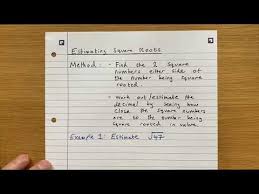 Estimating Square Roots
Method: - Find the 2 square
numbers either side of
the number being square
rooted.
- Work out/estimate the
decimal by seeing how
close the square numbers
are to the number being
square rooted in value.
Example 1: Estimate √47